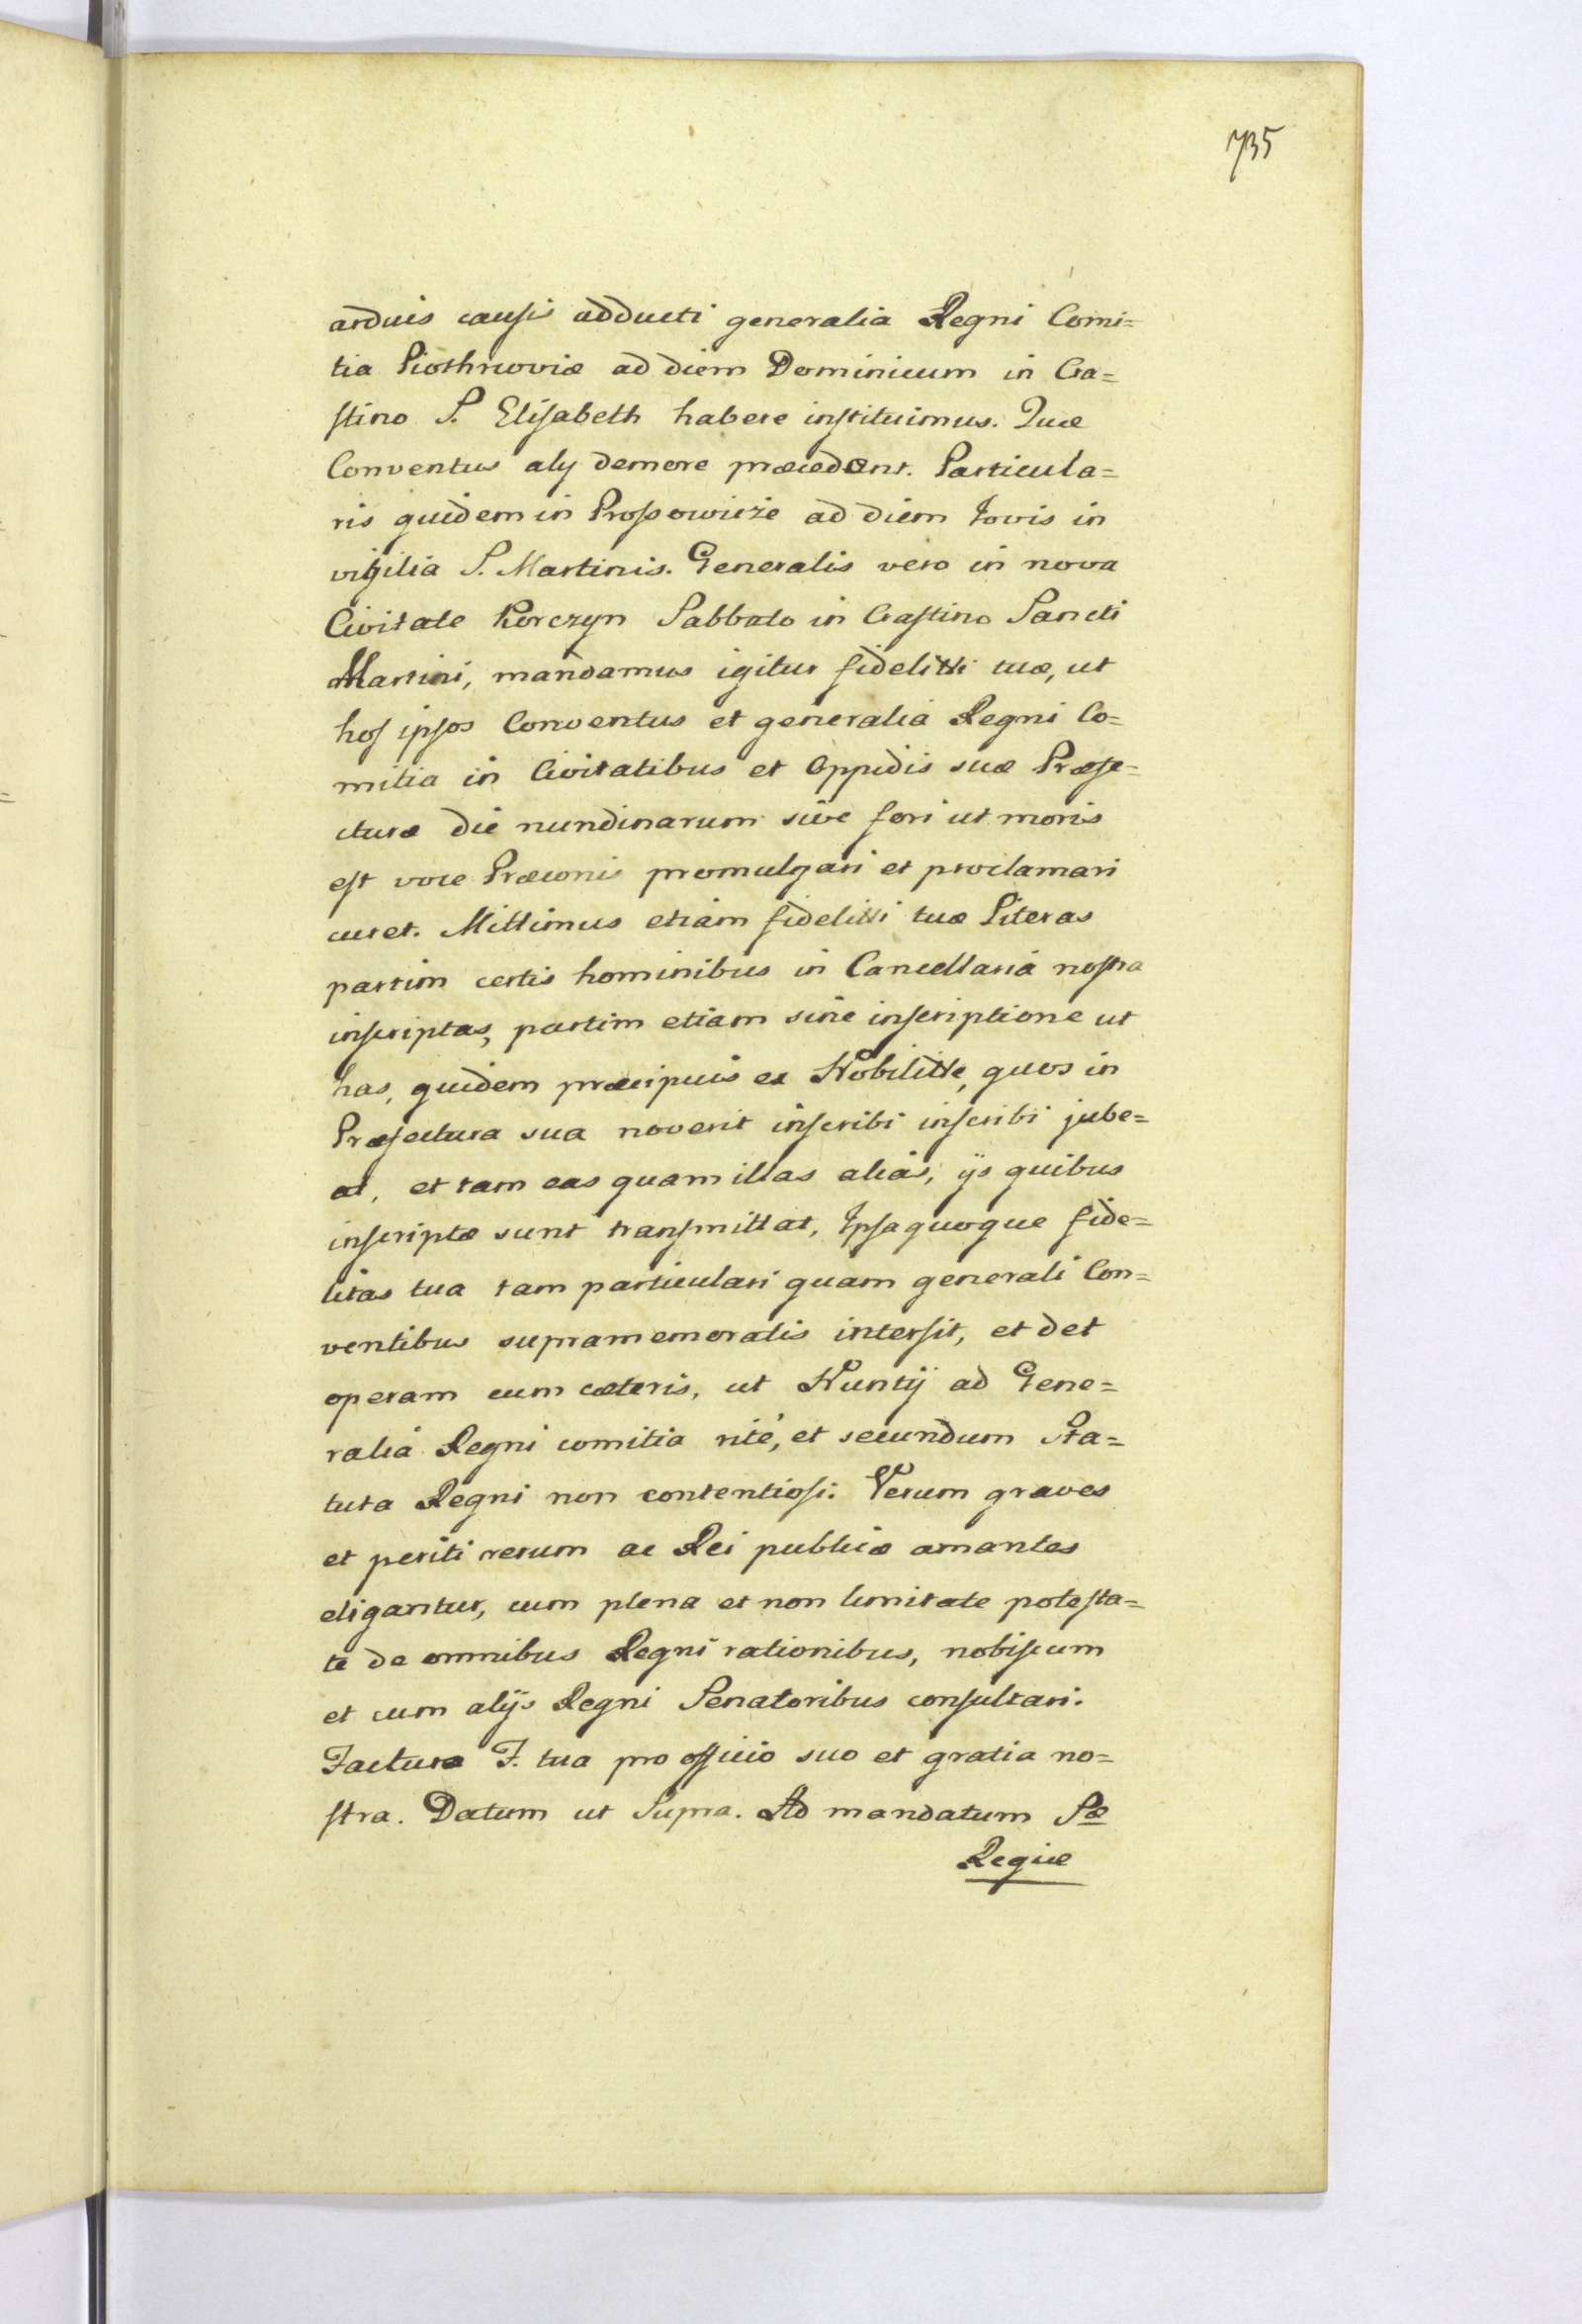 735
arduis causis adducti generalia Regni Comi=
tia Piothrcoviæ ad diem Dominicum in Cra=
stino S. Elisabeth habere instituimus. Quæ
Conventus alij demore præcedent. Particula=
ris quidem in Prossowicze ad diem Jovis in
vigilia S. Martinis. Generalis vero in nova
Civitate Korczyn Sabbato in Crastino Sancti
Martini, mandamus igitur fidelitti tuæ, ut
hos ipsos Conventus et generalia Regni Co=
mitia in Civitatibus et Oppidis suæ Præfe=
cturæ die nundinarum sive fori ut moris
est voce Præconis promulgari et proclamari
curet. Mittimus etiam fidelitti tuæ Literas
partim certis hominibus in Cancellaria nostra
inscriptas, partim etiam sine inscriptione ut
has, quidem præcipuis ex Nobilitte, quos in
Præfectura sua noverit inscribi inscribi jube=
at, et tam eas quam illas alias, ijs quibus
inscriptæ sunt transmittat, Ipsa quoque fide=
litas tua tam particulari quam generali Con=
ventibus supramemoratis intersit, et det
operam cum cæteris, ut Nuntij ad Gene=
ralia Regni comitia rité, et secundum Sta=
tuta Regni non contentiosi. Verum graves
et periti rerum ac Rei publicæ amantes
eligantur, cum plena et non limitate potesta=
te de omnibus Regni rationibus, nobiscum
et cum alijs Regni Senatoribus consultari.
Factura F. tua pro officio suo et gratia no=
stra. Datum ut Supra. Ad mandatum Sæ
Regiæ